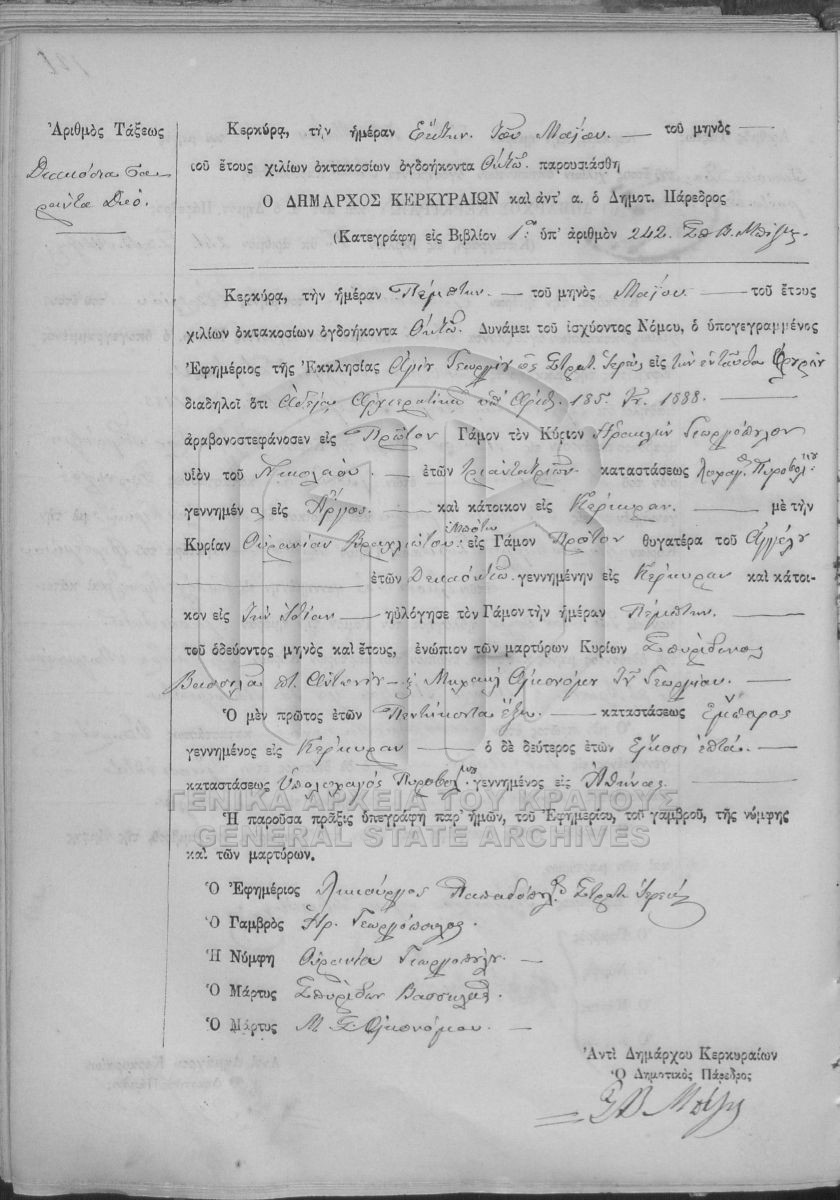 Ἀριθμὸς Τάξεως
Διακόσια σα-
ράντα Δύο.
Κερκύρᾳ, τὴν ἡμέραν Ἕκτην. τοῦ Μαΐου. — τοῦ μηνὸς —
τοῦ ἔτους χιλίων ὀκτακοσίων ὀγδοήκοντα Ὀκτὼ. παρουσιάσθη
Ο ΔΗΜΑΡΧΟΣ ΚΕΡΚΥΡΑΙΩΝ καὶ ἀντ' α. ὁ Δημοτ. Πάρεδρος
(Κατεγράφη εἰς Βιβλίον 1ον ὑπ' ἀριθμὸν 242. Σπ. Β.
Κερκύρᾳ, τὴν ἡμέραν Πέμπτην. — τοῦ μηνὸς Μαΐου — τοῦ ἔτους
χιλίων ὀκτακοσίων ὀγδοήκοντα Ὀκτὼ. Δυνάμει τοῦ ἰσχύοντος Νόμου, ὁ ὑπογεγραμμένος
Ἐφημέριος τῆς Ἐκκλησίας Ἁγίου Γεωργίου ὡς Στρατ. Ἱερεὺς εἰς τὴν ἐνταῦθα Φρουρὰν
διαδηλοῖ ὅτι Ἀδείᾳ Ἀρχιερατικῇ ὑπ' Ἀριθ. 185. 1888. —
ἀραβονοστεφάνοσεν εἰς Πρῶτον Γάμον τὸν Κύριον Ἡρακλῆν Γεωργόπουλον
υἱὸν τοῦ Νικολάου. — ἐτῶν τριάντα τριῶν. καταστάσεως λοχαγ. Πυροβολ-
γεννημένον εἰς Ἄργος. — καὶ κάτοικον εἰς Κέρκυραν. — μὲ τὴν
Κυρίαν Οὐρανίαν εἰς Γάμον Πρῶτον θυγατέρα τοῦ Ἀγγέλου
— ἐτῶν Δεκαοκτὼ. γεννημένην εἰς Κέρκυραν καὶ κάτοι-
κον εἰς τὴν Ἰδίαν — ηὐλόγησε τὸν Γάμον τὴν ἡμέραν Πέμπτην. —
τοῦ ὁδεύοντος μηνὸς καὶ ἔτους, ἐνώπιον τῶν μαρτύρων Κυρίων Σπυρίδωνος
Βασσιλᾶ Ἀντωνίου — Μιχαὴλ Οἰκονόμου τοῦ Γεωργίου. —
Ὁ μὲν πρῶτος ἐτῶν Πεντήκοντα ἕξ. — καταστάσεως Ἔμπορος
γεννημένος εἰς Κέρκυραν — ὁ δὲ δεύτερος ἐτῶν Εἴκοσι ἑπτά. —
καταστάσεως Ὑπολοχαγὸς Πυροβολ. γεννημένος εἰς Ἀθήνας. —
ΓΕΝΙΚΑ ΑΡΧΕΙΑ ΤΟΥ ΚΡΑΤΟΥΣ
Ἡ παροῦσα πρᾶξις ὑπεγράφη παρ' ἡμῶν, τοῦ Ἐφημερίου, τοῦ γαμβροῦ, τῆς νύμφης
GENERAL STATE ARCHIVES
καὶ τῶν μαρτύρων.
Ὁ Ἐφημέριος Λυκοῦργος Παπαδόπουλος Στρατ. Ἱερεύς
Ὁ Γαμβρὸς Ἡρ. Γεωργόπουλος.
Ἡ Νύμφη Οὐρανία Γεωργοπούλου. —
Ὁ Μάρτυς Σπυρίδων Βασσιλᾶς.
Ὁ Μάρτυς Μ Γ Οἰκονόμου. —
Ἀντὶ Δημάρχου Κερκυραίων
Ὁ Δημοτικὸς Πάρεδρος